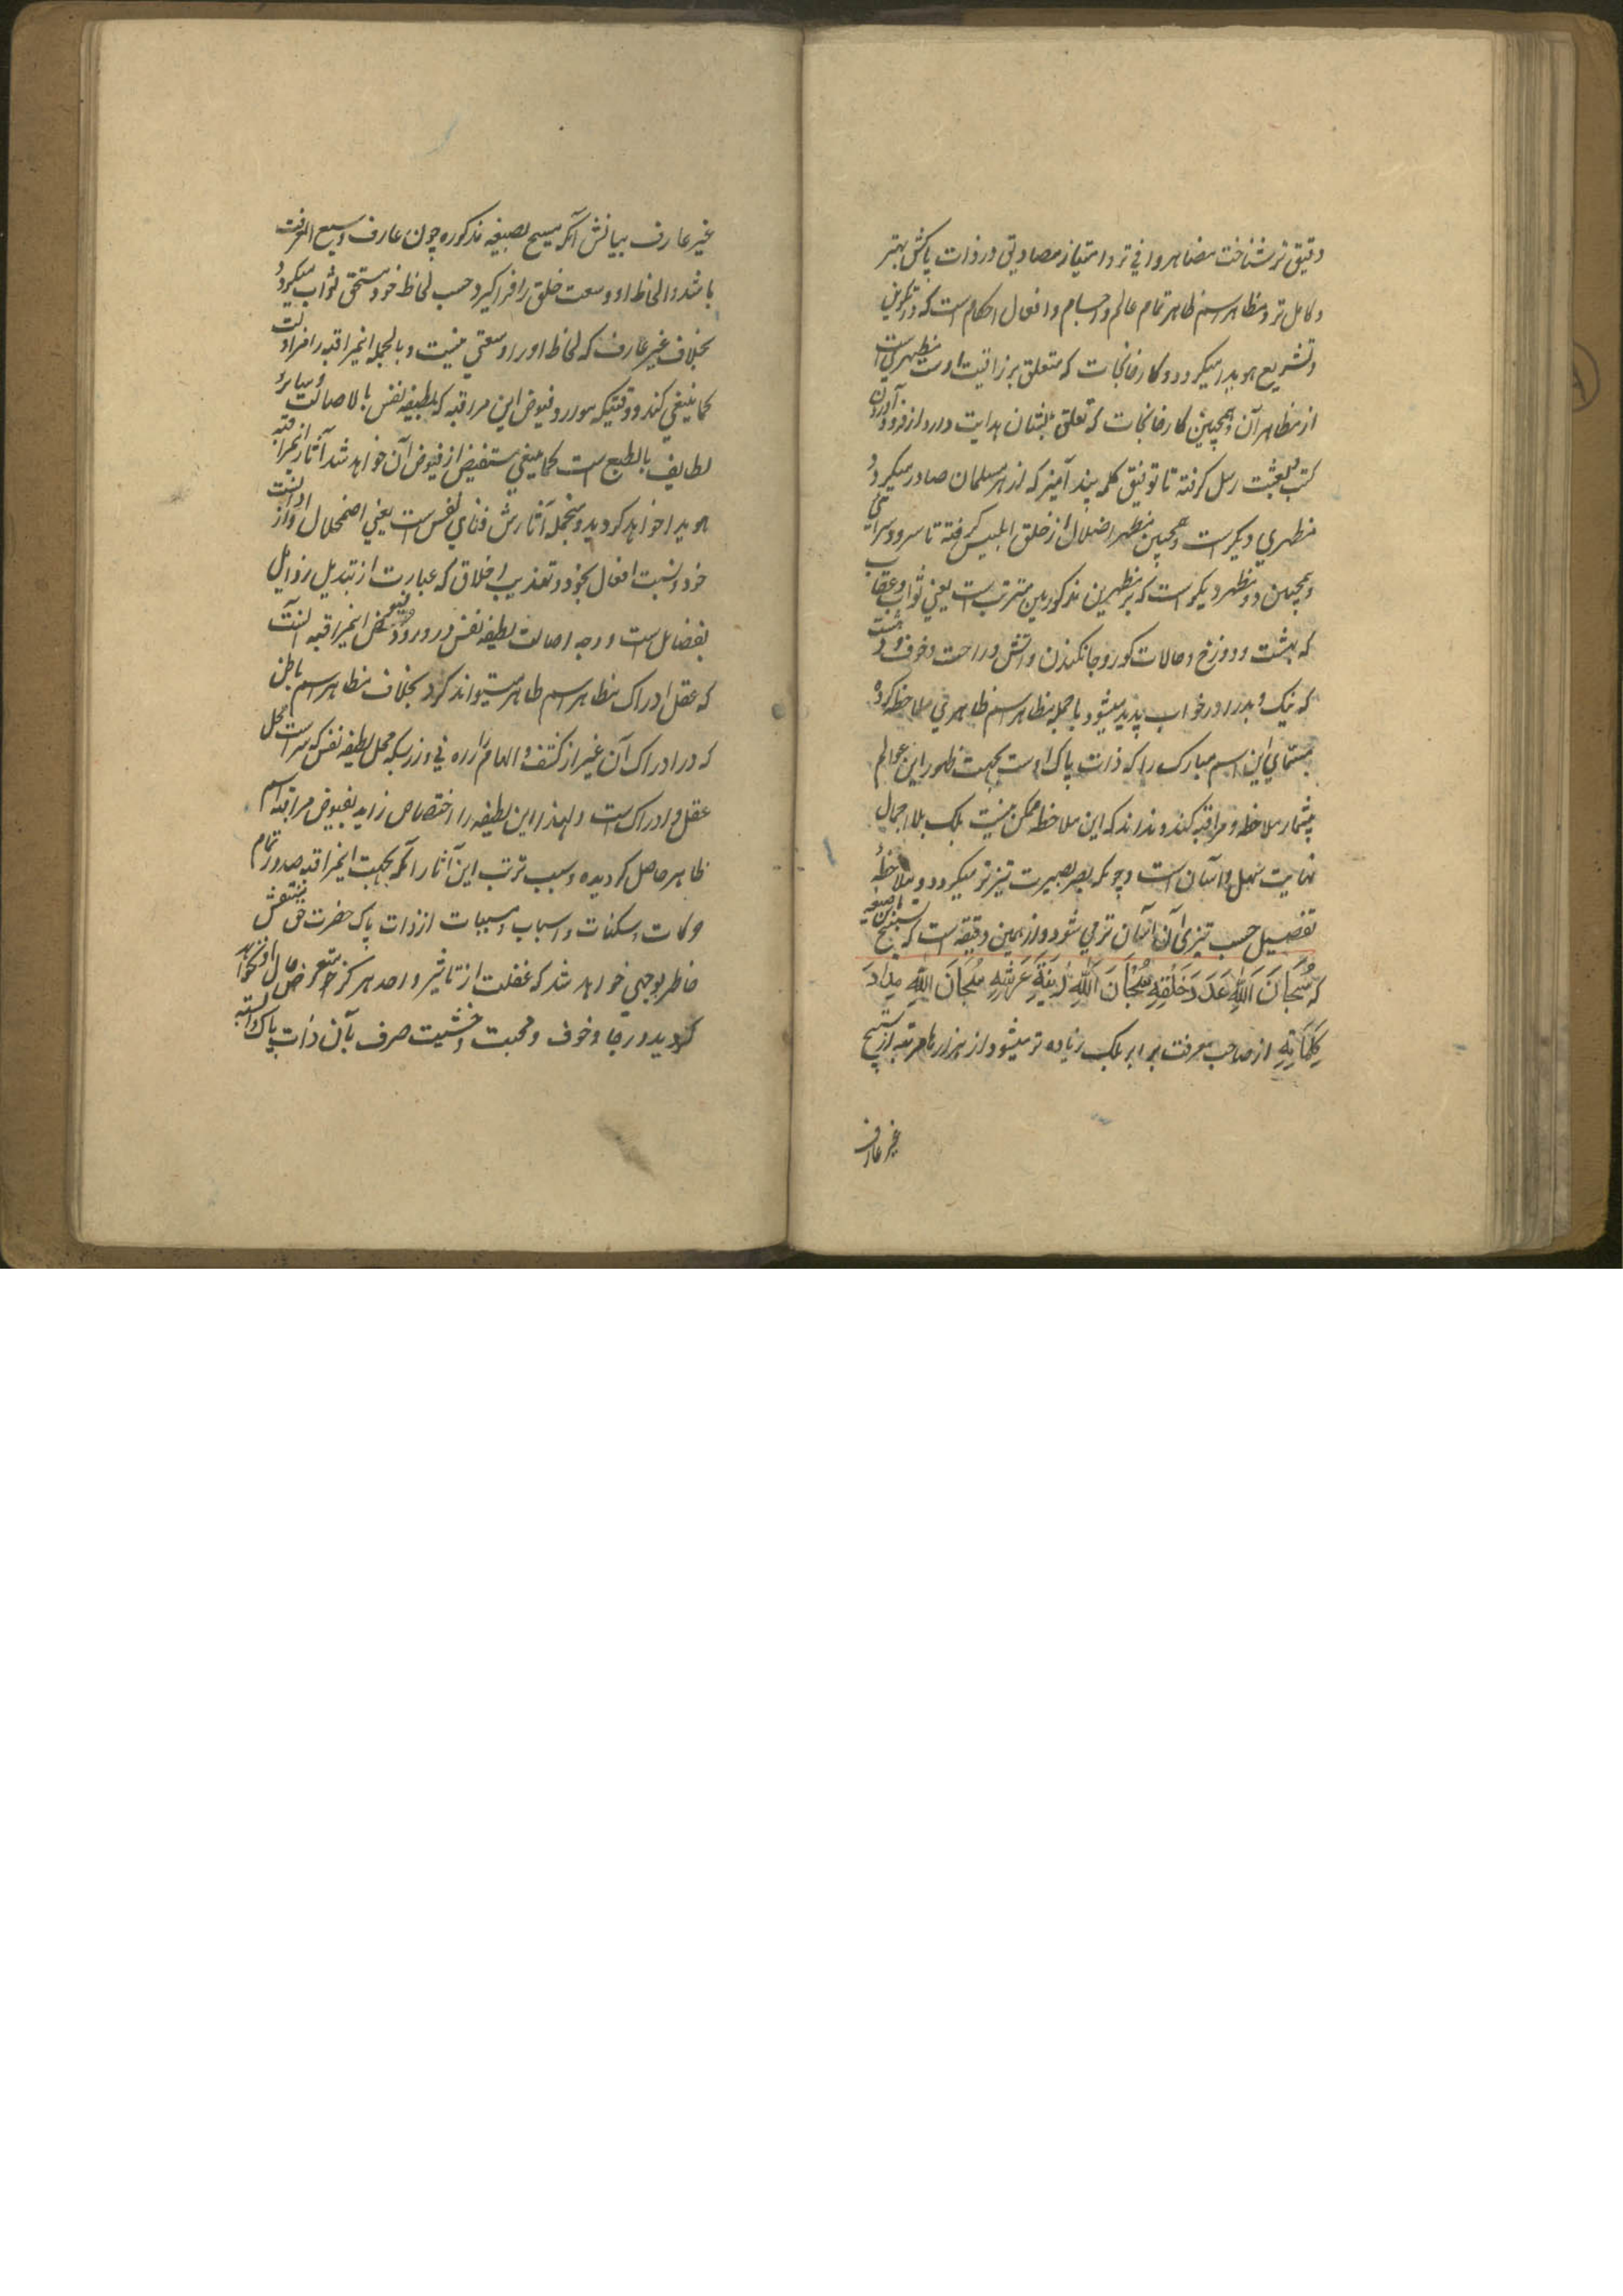 دقیق تر شناخت مضاهر وافی تر و امتیاز مصادیق در ذات پاکش بهتر
و کامل تر و مظاهر اسم ظاهر تمام عالم و اجسام و افعال احکام است که در تکوین
و تشریع هویدا میگردد و کارخانجات که متعلق برزاقیت اوست مظهری است
از مظاهر آن و همچنین کارخانجات که تعلق بشان هدایت دارد از فرود آوردن
کتب و بعثت رسل گرفته تا توفیق کلمه پند آمیز که از هر مسلمان صادر میگردد
مظهری دیگر است و همچنین مظهر اضلال از خلق ابلیس گرفته تا سرود سرائی
و همچنین دو مظهر دیگر است که بر مظهرین مذکورین مترتب است یعنی ثواب و عقاب
که بهشت و دوزخ و حالات گور و جانکندن و آتش و راحت و خوف و دهشت
که نیک و بد را در خواب پدید میشود با جمله مظاهر اسم ظاهر بی ملاحظه کرده
مسمای این اسم مبارک را که ذات پاک اوست بجهت ظهور این عوالم
بیشمار ملاحظه و مراقبه کند و نداند که این ملاحظه ممکن نیست بلکه بلا اجمال
نهایت سهل و آسان است و چونکه بصر بصیرت تیزتر میگردد و ملاحظهٔ
تفصیل حسب تیزی آن آسان تر می شود و از همین دقیقه است که تسبیح باین صیغه
که سُبْحَانَ اللّٰهِ عَدَدَ خَلْقِهِ سُبْحَانَ اللّٰهِ زِنَةَ عَرْشِهِ سُبْحَانَ اللّٰهِ مِدَادَ
كَلِمَاتِهِ از صاحب معرفت برابر بلکه زیاده تر میشود از هزارها مرتبه از تسبیح
غیر عارف
غیر عارف بیانش آنکه مسبح بصیغه مذکوره چون عارف وسیع المعرفت
باشد و الحاظ او وسعت خلق را فرا گیرد حسب لحاظ خود مستحق ثواب میگردد
بخلاف غیر عارف که لحاظ او را وسعتی نیست و بالجمله اینمراقبه را مزاولت
کما ینبغی کند و وقتیکه مورد فیوض این مراقبه که لطیفه نفس بالاصالت و سائر
لطایف بالطبع است کما ینبغی مستفیض از فیوض آن خواهد شد آثار اینمراقبه
هویدا خواهد گردید و منجمله آثارش فنای نفس است یعنی اضمحلال ارادات
خود و نسبت افعال بخود و تهذیب اخلاق که عبارت از تبدیل رذایل
بفضایل است و وجه اصالت لطیفه نفس در ورود فیوض اینمراقبه آنست
که عقل ادراک مظاهر اسم ظاهر میتواند کرد بخلاف مظاهر اسم باطن
که در ادراک آن غیر از کشف و الهام را راه نی و از بسکه محل لطیفه نفس که سر است محل
عقل و ادراک است و لهذا این لطیفه را اختصاص زاید بفیوض مراقبه اسم
ظاهر حاصل گردیده و سبب ترتب این آثار آنکه بجهت اینمراقبه صدور تمام
حرکات و سکنات و اسباب و مسببات از ذات پاک حضرت حق منتقش
خاطر بوجهی خواهد شد که غفلت از تاثیر واحد هرگز متعرض حال او نخواهد
گردید و رجا و خوف و محبت و خشیت صرف بآن ذات پاک وابسته